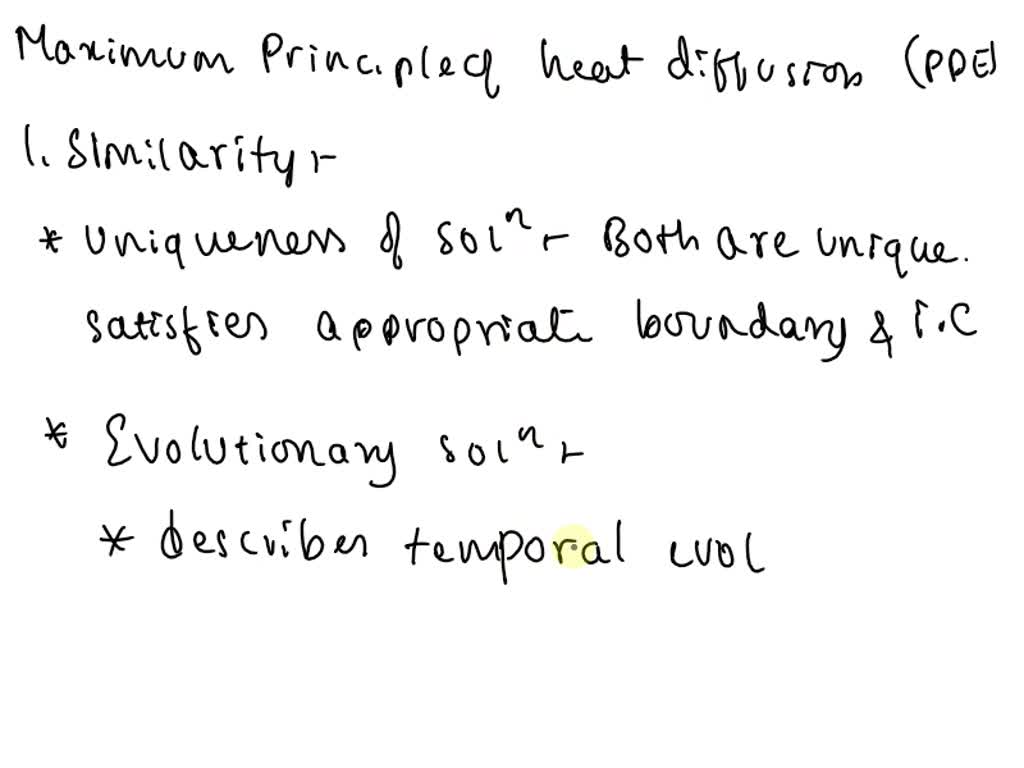 Maximum Principleq heat diffusion (PDE)
1. Similarity :-
* Uniqueness of solⁿ :- Both are unique.
satisfies appropriate boundary & I.C
* Evolutionary solⁿ :-
* describes temporal evol